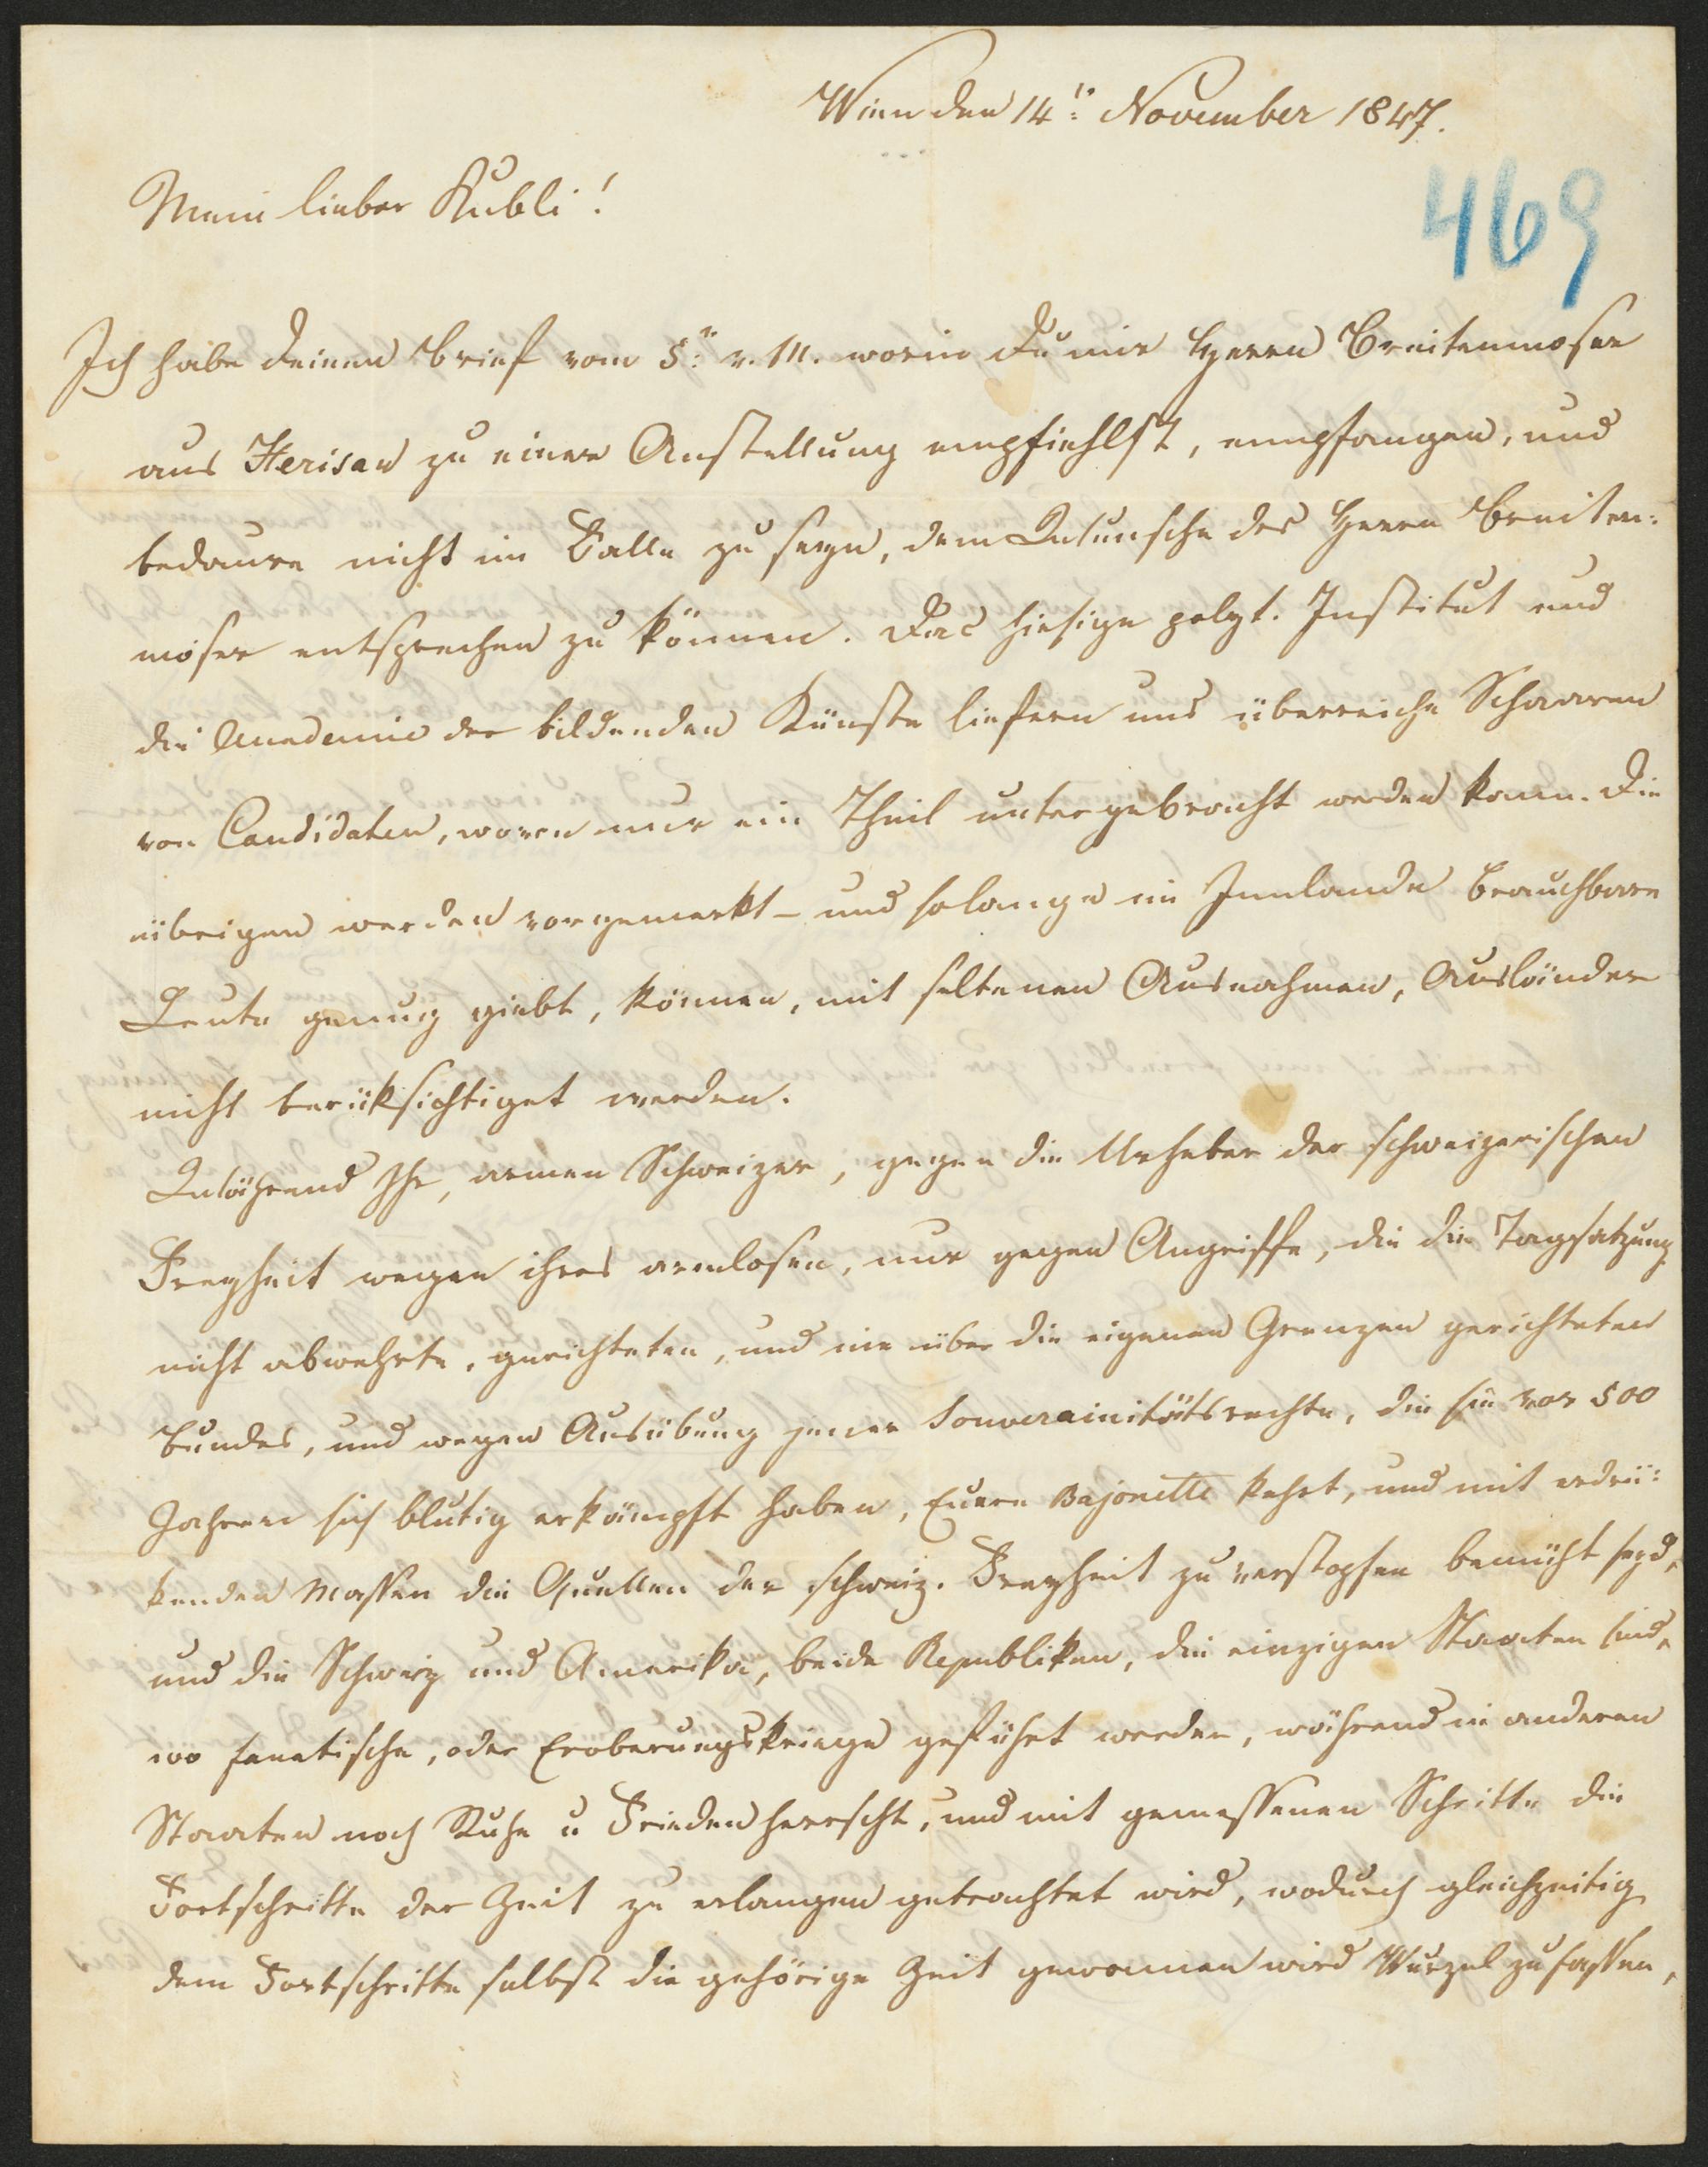 Wien den 14t: November 1847.
469
Mein lieber Kubli!
Ich habe Deinen Brief vom 5t: v. M. worin Du mir Herrn Breitenmoser
aus Herisau zu einer Anstellung empfiehlst, empfangen, und
bedaure nicht im Falle zu seyn, dem Wunsche des Herrn Breiten:
moser entsprechen zu können. Das hiesige polyt. Institut und
die Academie der bildenden Künste liefern uns überreiche Schaaren
von Candidaten, wovon nur ein Theil untergebracht werden kann. Die
übrigen werden vorgemerkt – und solange im Innlande brauchbare
Leute genug giebt, können, mit seltenen Ausnahmen, Ausländer
nicht berüksichtiget werden.
Während Ihr, armen Schweizer, gegen die Urheber der schweizerischen
Freyheit wegen ihres armlosen, nur gegen Angriffe, die die Tagsatzung
nicht abwehrte, gerichteten, und nie über die eigenen Grenzen gerichteten
Bundes, und wegen Ausübung jener Souverainitätsrechte, die sie vor 500
Jahren sich blutig erkämpft haben, Euere Bajonette kehrt, und mit erdrü:
kenden Massen die Quellen der schweiz. Freyheit zu verstopfen bemüht seyd,
und die Schweiz und Amerika, beide Republiken, die einzigen Staaten sind,
wo fanatische, oder Eroberungskriege geführt werden, während in anderen
Staaten noch Ruhe u Frieden herrscht, und mit gemessenen Schritte die
Fortschritte der Zeit zu erlangen getrachtet wird, wodurch gleichzeitig
dem Fortschritte selbst die gehörige Zeit gewonnen wird Wurzel zu fassen,